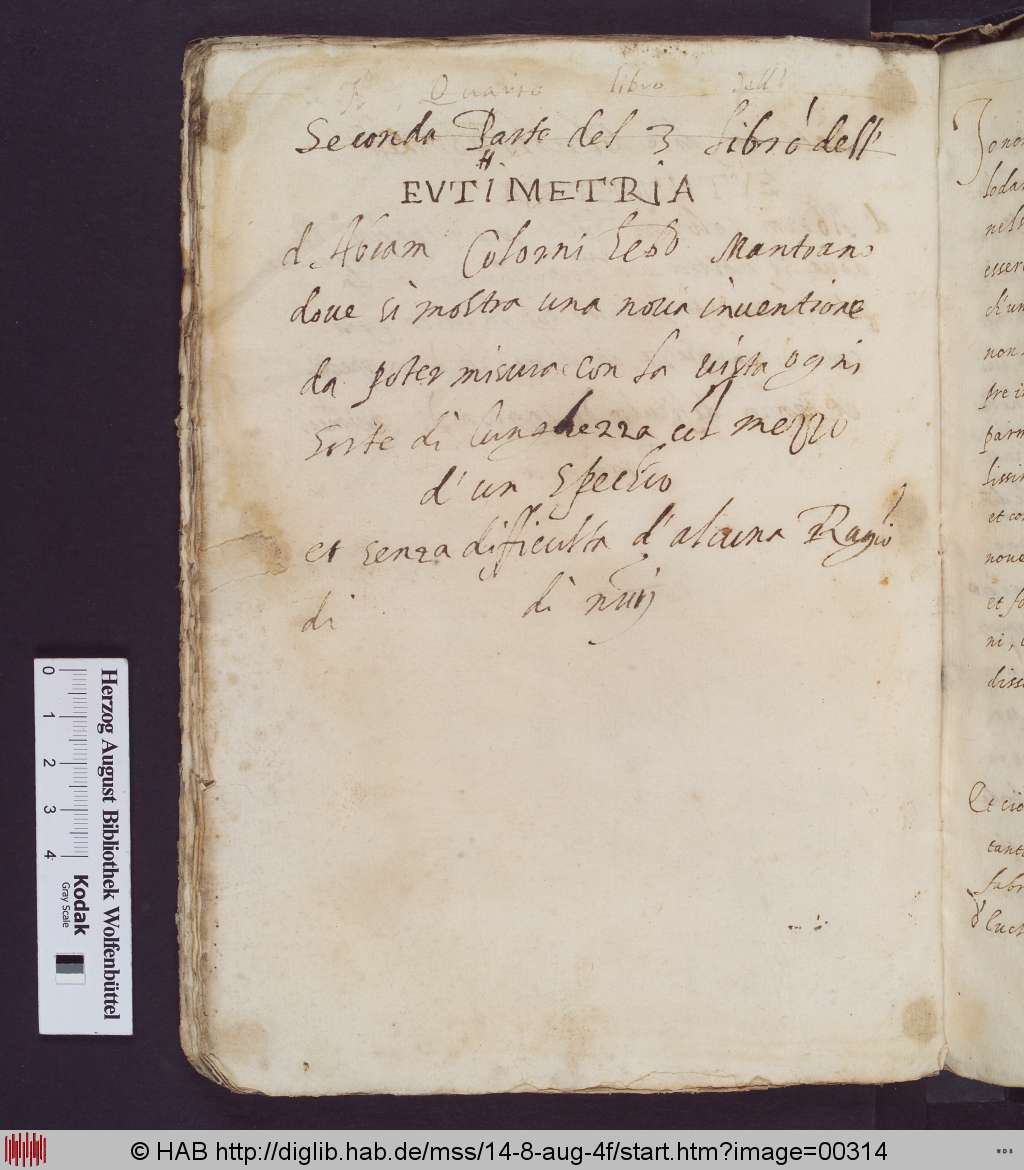 Quarto libro dell'
Seconda Parte del 3 libro dell'
H
EVTIMETRIA
d'Abram Colorni Hebo Mantoano
doue si mostra una noua inuentione
da poter misurar con la uista ogni
sorte di lunghezza col mezzo
d'un specchio
et senza difficulta d'alcuna Ragio
di di nuij
lodar
esser
ch'un
non
pre i
parm
lissi
et co
noue
et fo
ni,
diss
Et cio
tant
fabr
0 1 2 3 4
Kodak
Gray Scale
Herzog August Bibliothek Wolfenbüttel
© HAB http://diglib.hab.de/mss/14-8-aug-4f/start.htm?image=00314
WDB